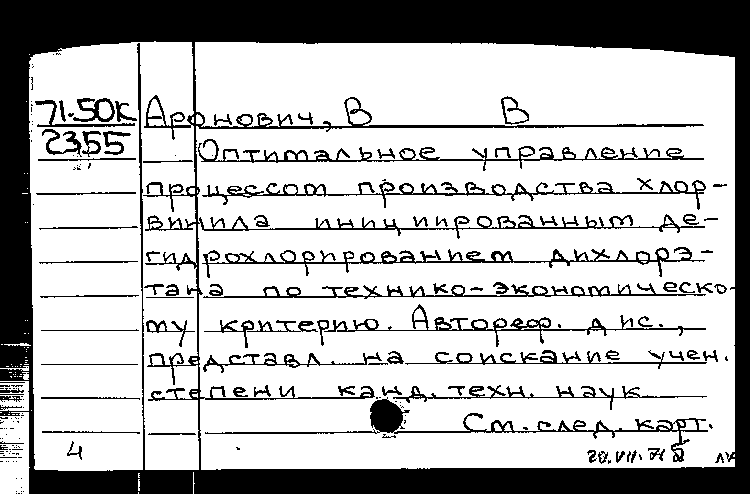 71-50К Аронович, В В
2355 Оптимальное управление
процессом производства хлор-
винила инициированным де-
гидрохлорированием дихлорэ-
тана по технико-экономическо-
му критерию. Автореф. дис.,
представл. на соискание учен.
степени канд. техн. наук
См. след. карт.
4 20.VII.71